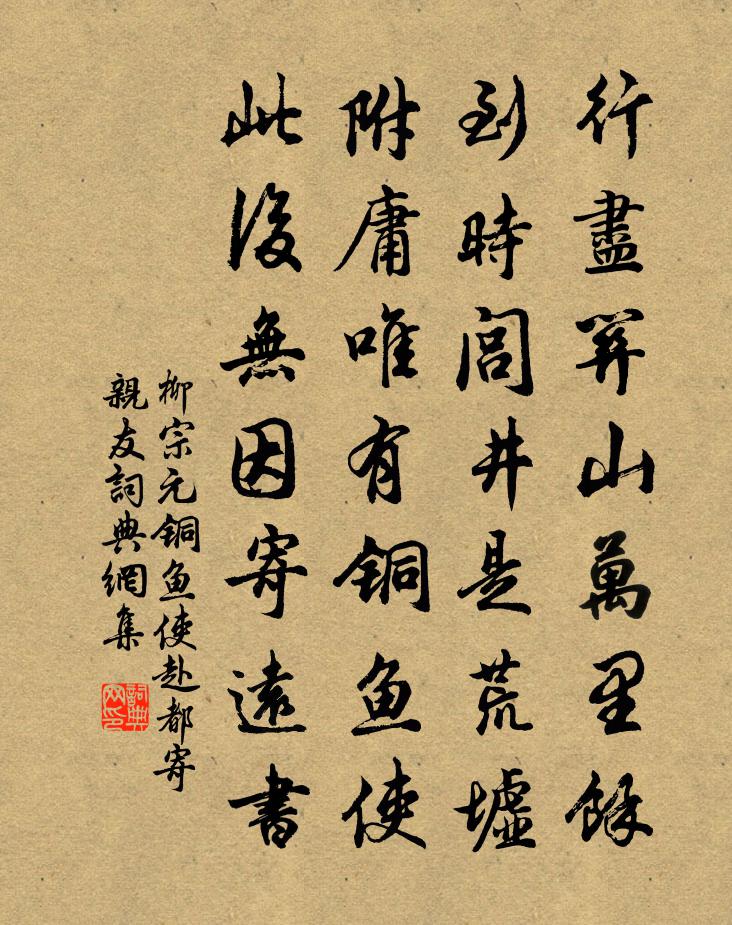 行盡關山萬里餘
到時閭井是荒墟
附庸唯有铜鱼使
此後無因寄遠書
柳宗元铜鱼使赴都寄
親友詞典網集
詞典
网印